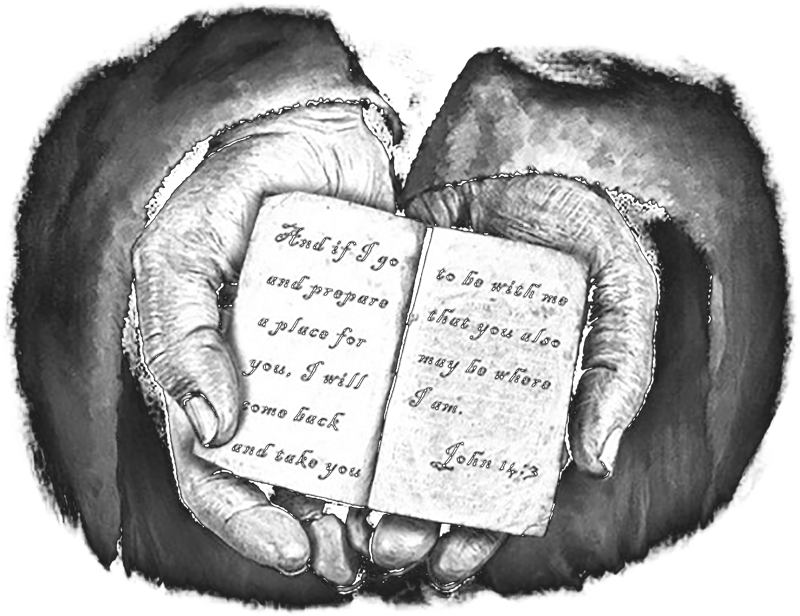 And if I go
and prepare
a place for
you, I will
come back
and take you
to be with me
that you also
may be where
I am.
John 14:3